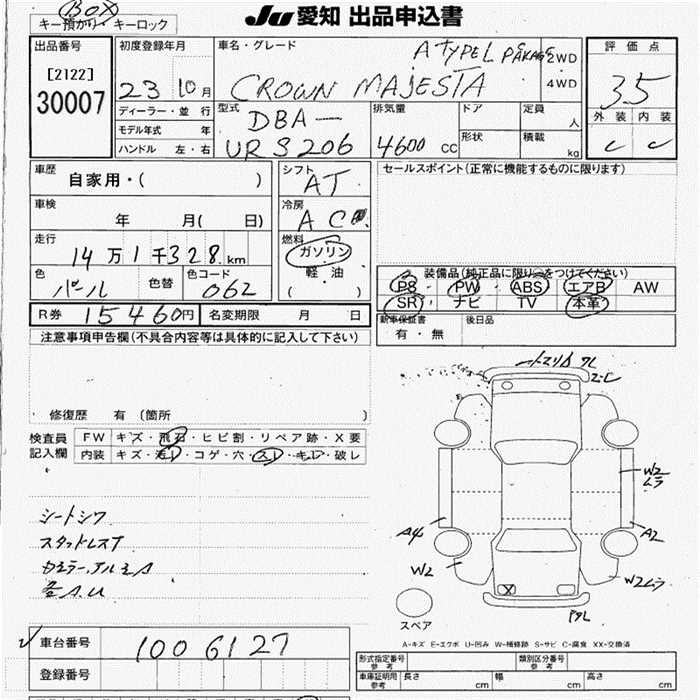 BOX
キー預かり・キーロック
JU 愛知 出品申込書
出品番号
[2122]
30007
初度登録年月
23 10月
ディーラー・並 行
モデル年式 年
ハンドル 左・右
車名・グレード
A TYPE L PAKAGE
CROWN MAJESTA
2WD
4WD
型式
DBA-
URS206
排気量
4600 CC
ドア
形状
定員
人
積載
kg
評 価 点
3.5
外 装 内 装
C C
車歴
自家用・( )
車検
年 月( 日)
走行
14万1千328km
色
パール
色替
色コード
062
R券 15460円
名変期限 月 日
シフト
AT
冷房
AC
燃料
ガソリン
軽 油
( )
セールスポイント(正常に機能するものに限ります)
装備品(純正品に限り○をつけてください)
PS PW ABS エアB AW
SR ナビ TV 本革
新車保証書
有・無
後日品
注意事項申告欄(不具合内容等は具体的に記入して下さい)
修復歴 有(箇所 )
検査員
記入欄
FW キズ・飛石・ヒビ割・リペア跡・X要
内装 キズ・汚レ・コゲ・穴・スレ・キレ・破レ
シートシワ
スタッドレスT
カエラーアルミA
A.U
車台番号
1006127
登録番号
W2
ムラ
A4
A2
W2
W2ムラ
スペア
A-キズ E-エクボ U-凹み W-補修跡 S-サビ C-腐食 XX-交換済
形式指定番号
参 考
類別区分番号
参 考
車庫証明用
参考
長さ cm
幅 cm
高さ cm